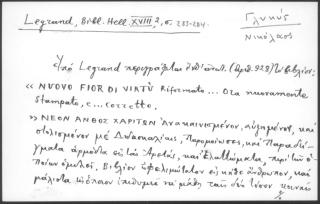 Legrand, Bibl. Hell. XVIII, 2, σ. 283-284.
Γλυκύς
Νικόλαος
Ὑπὸ Legrand περιγράφεται ὑπ' ἀριθ. (ἀριθ. 928) τὸ βιβλίον:
« NUOVO FIOR DI VIRTÙ Riformato... Ora nuovamente
stampato, e... corretto.
» ΝΕΟΝ ΑΝΘΟΣ ΧΑΡΙΤΩΝ Ἀνακαινισμένον, αὐξημένον, καὶ
στολισμένον μὲ Διδασκαλίαις, Παροιμίαις, καὶ Παραδεί-
γματα ἁρμόδια εἰς ταῖς Ἀρεταῖς, καὶ Ἐλαττώματα, περὶ τῶν ὁ-
ποίων ὁμιλεῖ. Βιβλίον ὠφελιμώτατον εἰς κάθε ἄνθρωπον, καὶ
μάλιστα εἰς ὅποιον ἐπιθυμεῖ νὰ μάθῃ